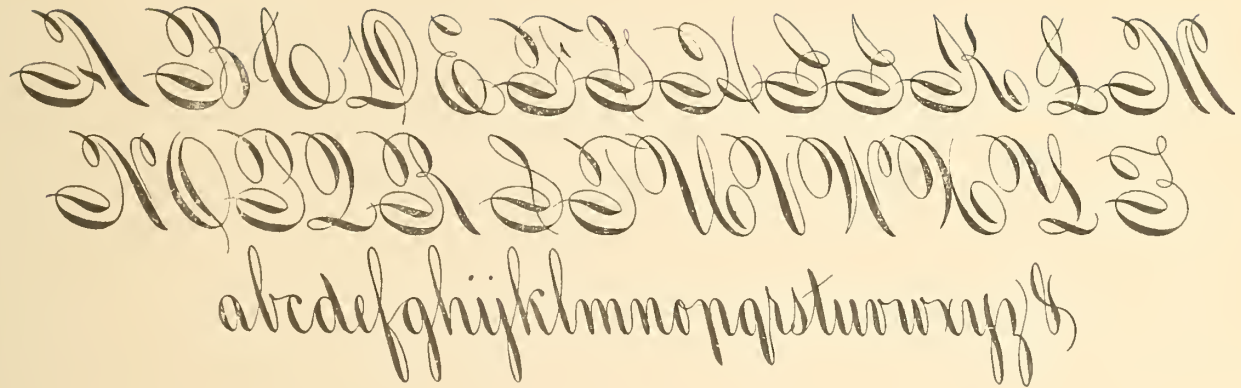 A B C D E F G H I J K L M
N O P Q R S T U V W X Y Z
abcdefghijklmnopqrstuvwxyz&